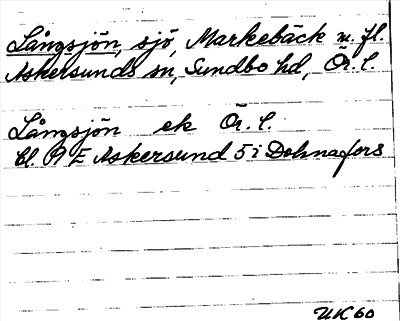 Långsjön, sjö, Markebäck m. fl.
Askersunds sn, Sundbo hd, Ör. l.
Långsjön ek Ör. l.
bl. 9 E Askersund 5 i Dohnafors
UK 60